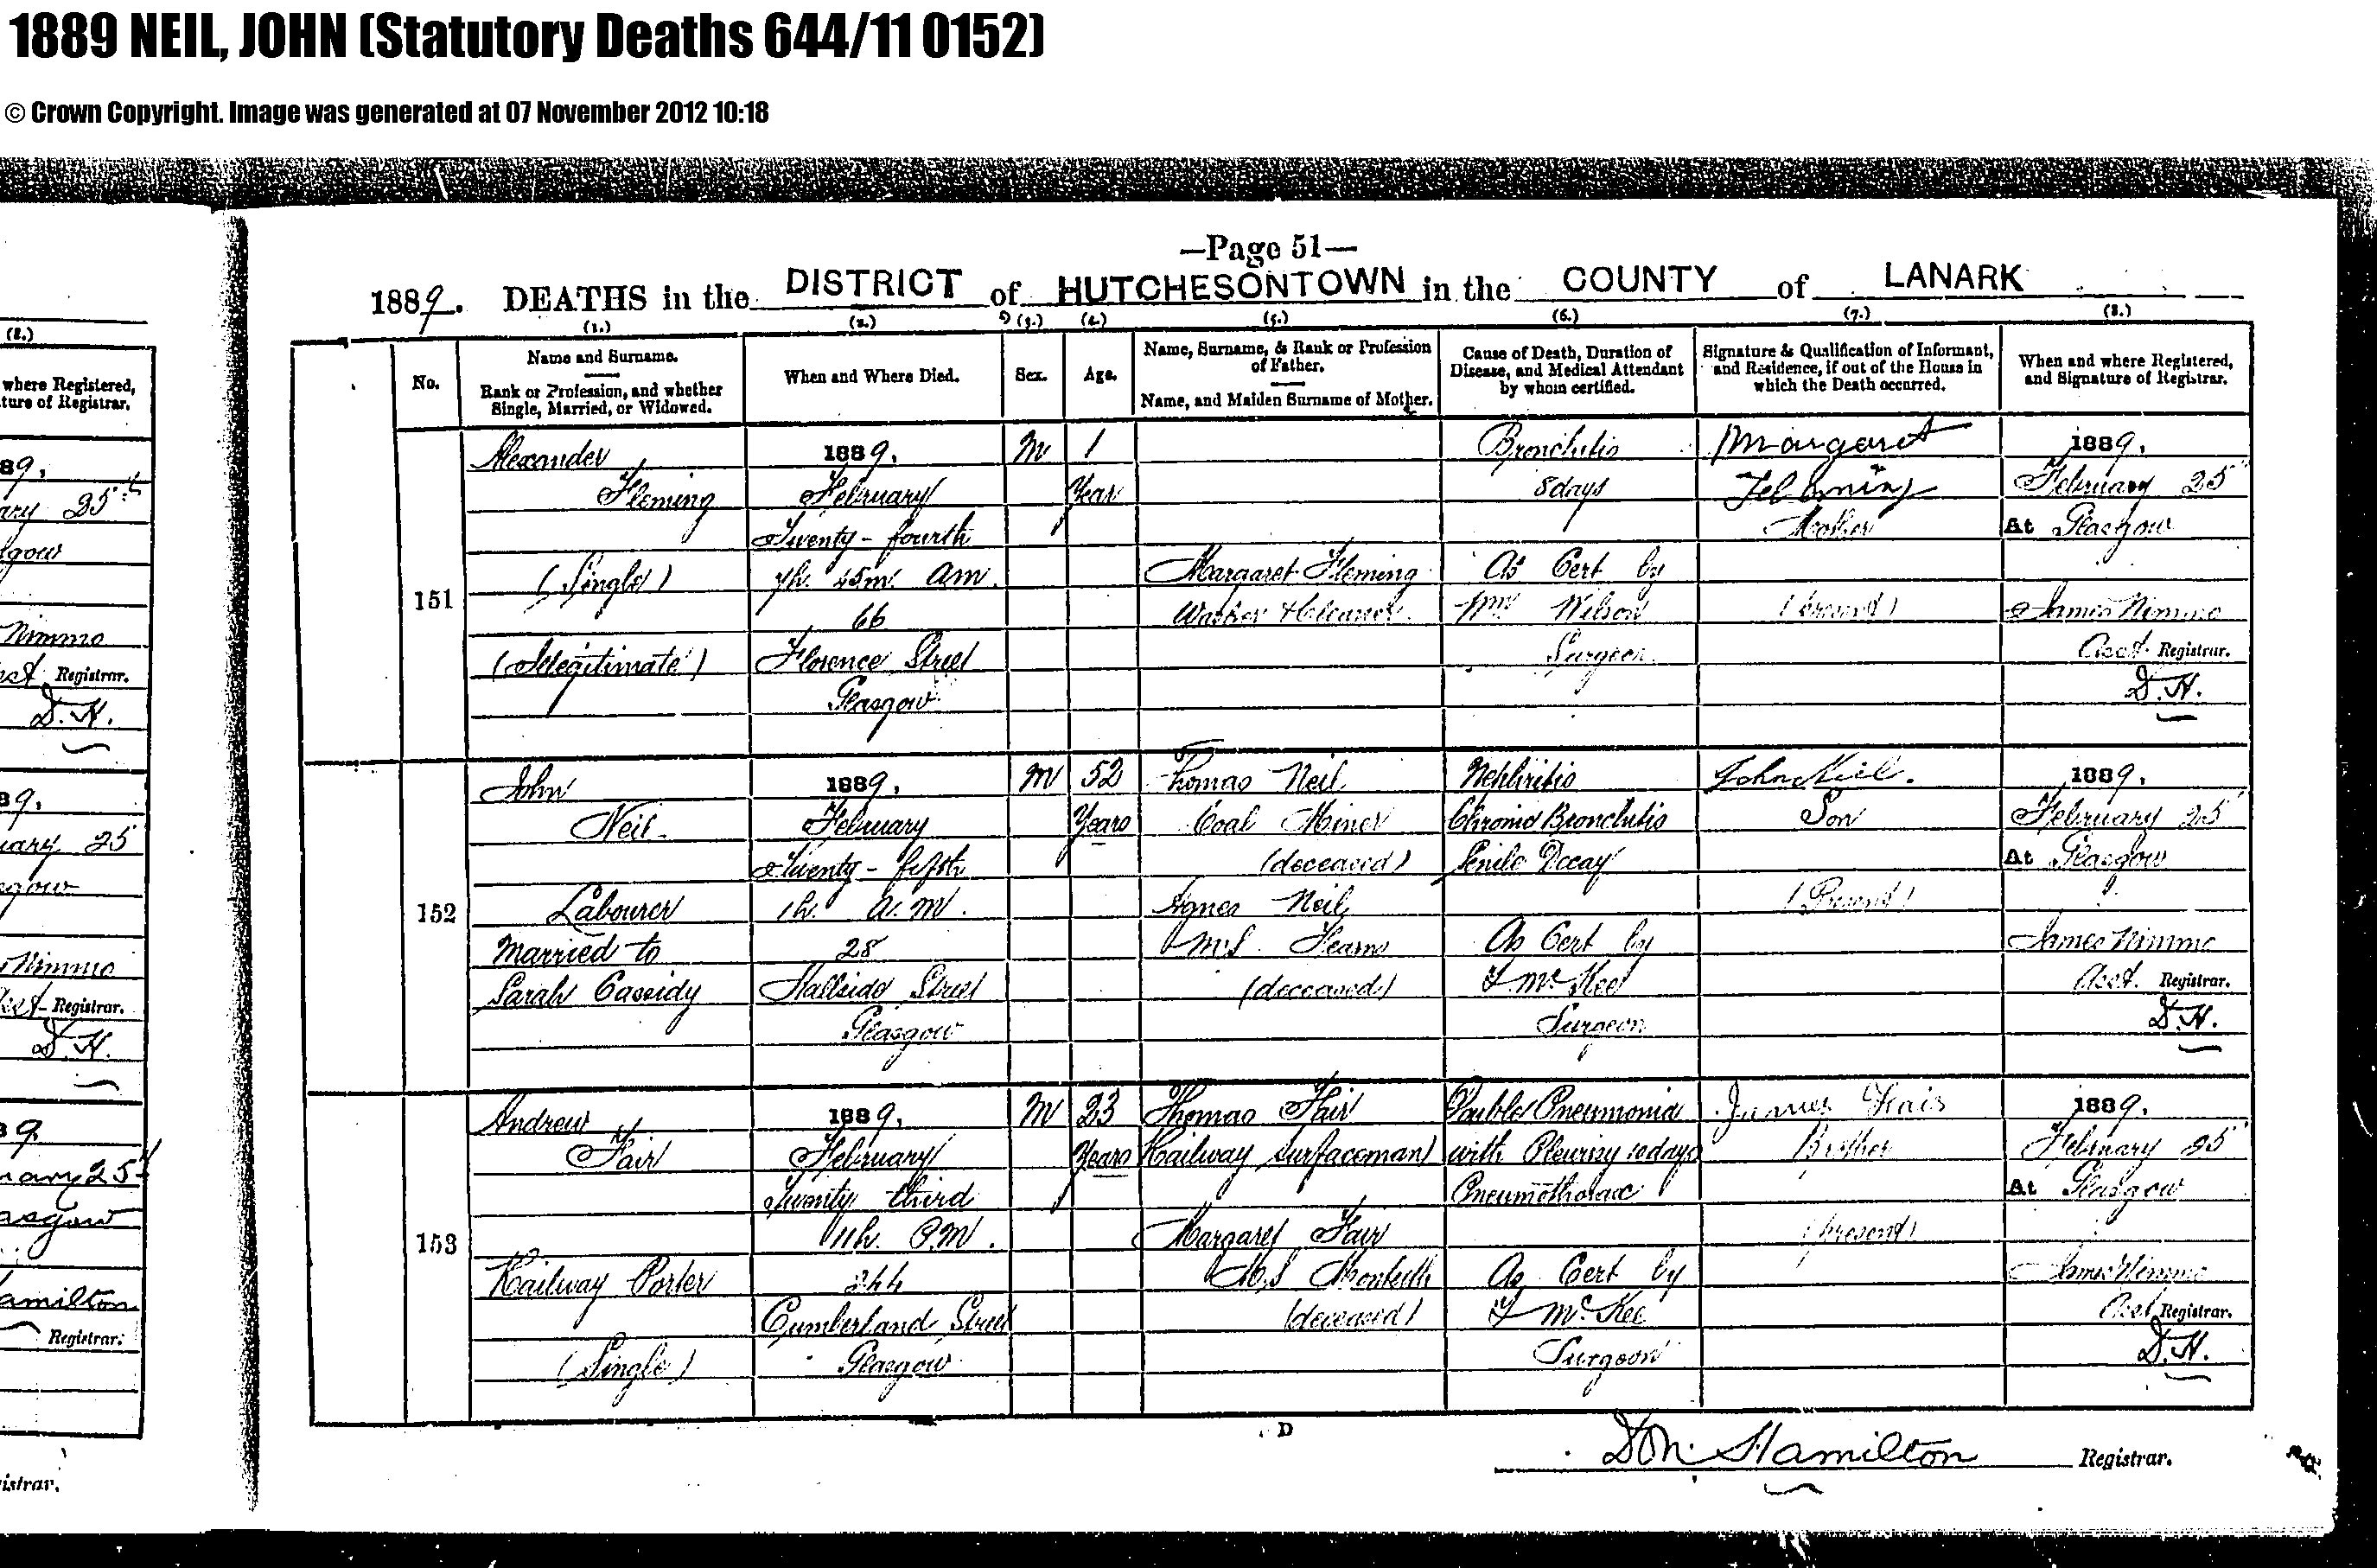 1889 NEIL, JOHN (Statutory Deaths 644/11 0152)
© Crown Copyright. Image was generated at 07 November 2012 10:18
—Page 51—
1889. DEATHS in the DISTRICT of HUTCHESONTOWN in the COUNTY of LANARK
(1.) (2.) (3.) (4.) (5.) (6.) (7.) (8.)
No.
Name and Surname.
Rank or Profession, and whether
Single, Married, or Widowed.
When and Where Died.
Sex.
Age.
Name, Surname, & Rank or Profession
of Father.
Name, and Maiden Surname of Mother.
Cause of Death, Duration of
Disease, and Medical Attendant
by whom certified.
Signature & Qualification of Informant,
and Residence, if out of the House in
which the Death occurred.
When and where Registered,
and Signature of Registrar.
151
Alexander
Fleming
(Single)
(Illegitimate)
1889.
February
Twenty-fourth
7h. 45m. am.
66
Florence Street
Glasgow
M
1
Year
Margaret Fleming
Bronchitis
8 days
As Cert by
Wilson
Surgeon
Margaret
Mother
(present)
1889.
February 25
At Glasgow
James Nimmo
Asst. Registrar.
D.H.
152
John
Neil
Labourer
Married to
Sarah Cassidy
1889.
February
Twenty-fifth
1h. a.m.
28
Hallside Street
Glasgow
M
52
Years
Thomas Neil
Coal Miner
(deceased)
Agnes Neil
M.S. Hearns
(deceased)
Nephritis
Chronic Bronchitis
Senile Decay
As Cert by
McKee
Surgeon
John Neil.
Son
(Present)
1889.
February 25
At Glasgow
James Nimmo
Asst. Registrar.
D.H.
153
Andrew
Fair
Railway Porter
(Single)
1889.
February
Twenty third
11h. P.M.
244
Cumberland Street
Glasgow
M
23
Years
Thomas Fair
(Railway Surfaceman)
Margaret Fair
M.S. Monteith
(deceased)
Double Pneumonia
with Pleurisy 10 days
Pneumothorax
As Cert by
McKee
Surgeon
James Fair
Brother
(present)
1889.
February 25
At Glasgow
James Nimmo
Asst. Registrar.
D.H.
D
Hamilton Registrar.